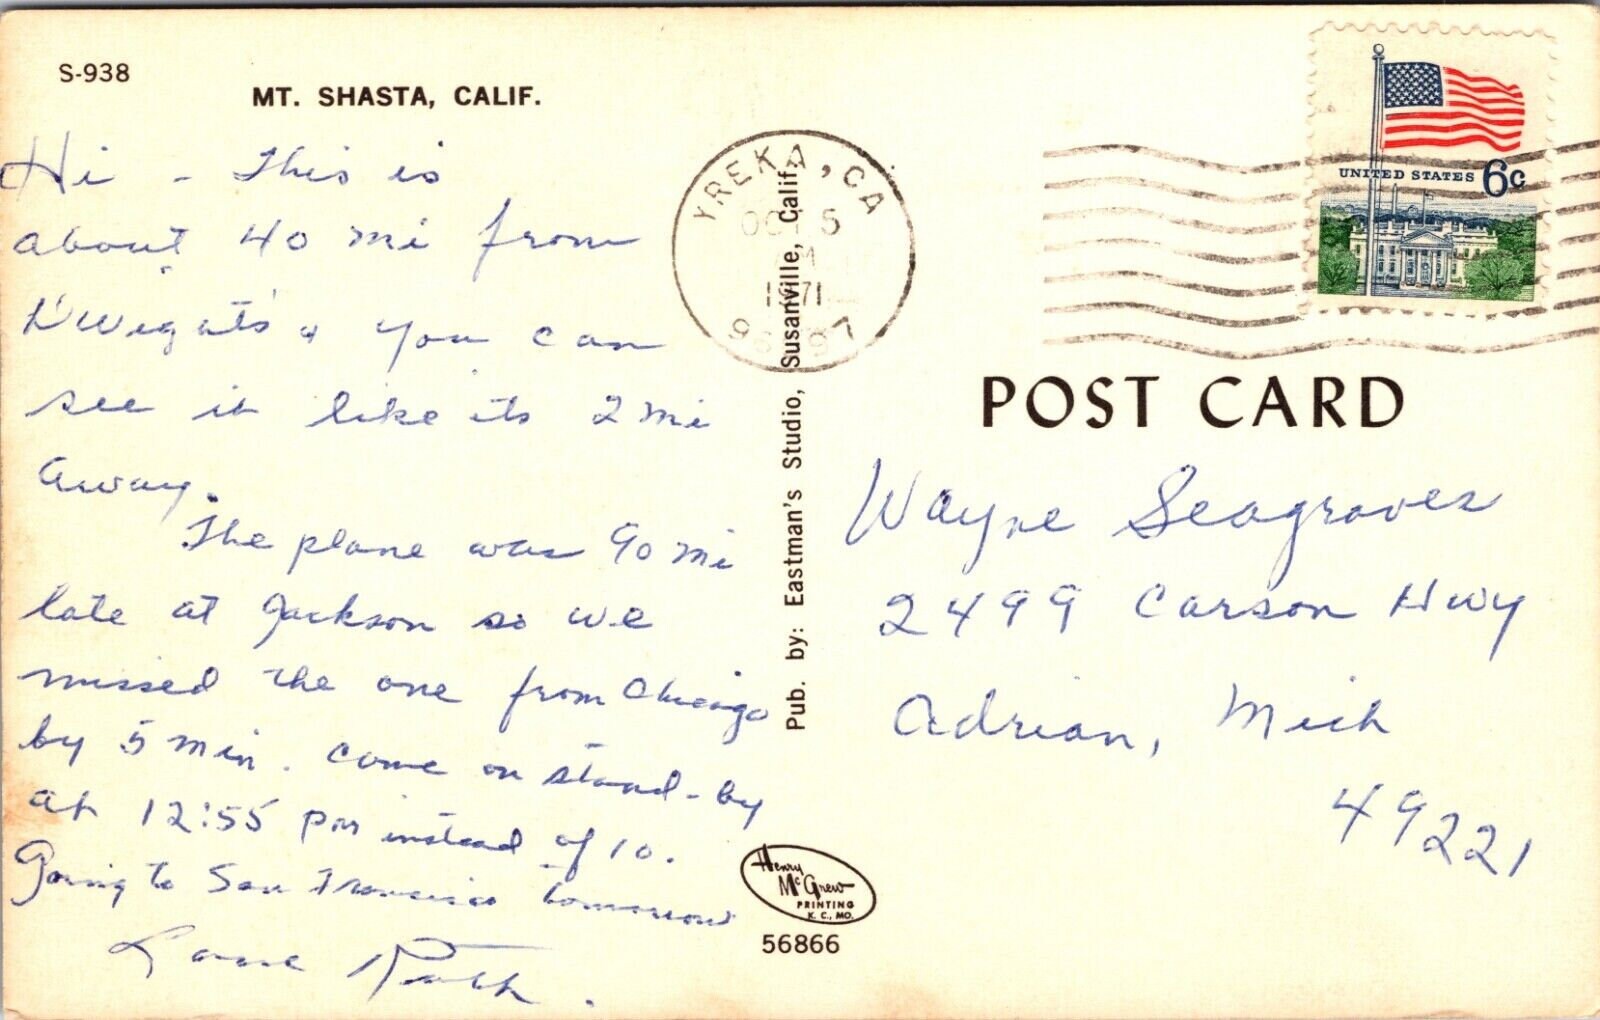 S-938
MT. SHASTA, CALIF.
Hi - This is
about 40 mi from
Dwights & you can
see it like its 2 mi
away.
The plane was 90 mi
late at Jackson so we
missed the one from Chicago
by 5 min. Came on stand-by
at 12:55 PM instead of 10.
Going to San Francisco tomorrow
Ruth.
Pub. by: Eastman's Studio, Susanville, Calif.
YREKA, CA
OCT 5
AM
1971
UNITED STATES 6c
POST CARD
Wayne Seagraves
2499 Carson Hwy
Adrian, Mich
49221
Henry
McGrew
PRINTING
K.C., MO.
56866